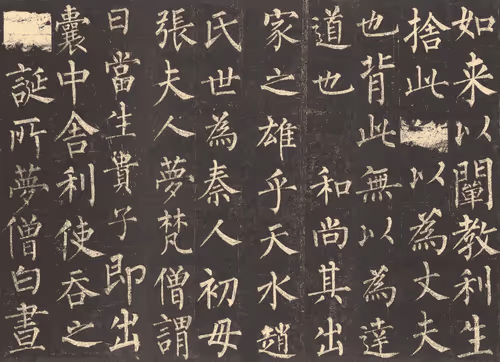 如来以闡教利生
捨此以為丈夫
也背此無以為達
道也 和尚其出
家之雄乎天水趙
氏世為秦人初母
張夫人夢梵僧謂
曰當生貴子即出
囊中舍利使吞之
誕所夢僧白晝